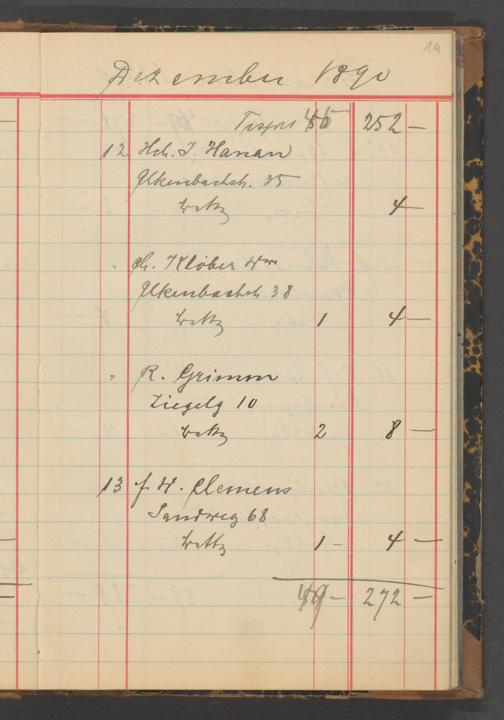 14
Dezember 1890
Trsprt 45 252 —
12 Hch. J. Hanau
Elkenbachstr. 35
4 —
" Ch. Klöber Wwe
Elkenbachstr 38
1 4 —
" R. Grimm
Ziegelg 10
2 8 —
13 J. W. Clemens
Sandweg 68
1 — 4 —
49 — 272 —